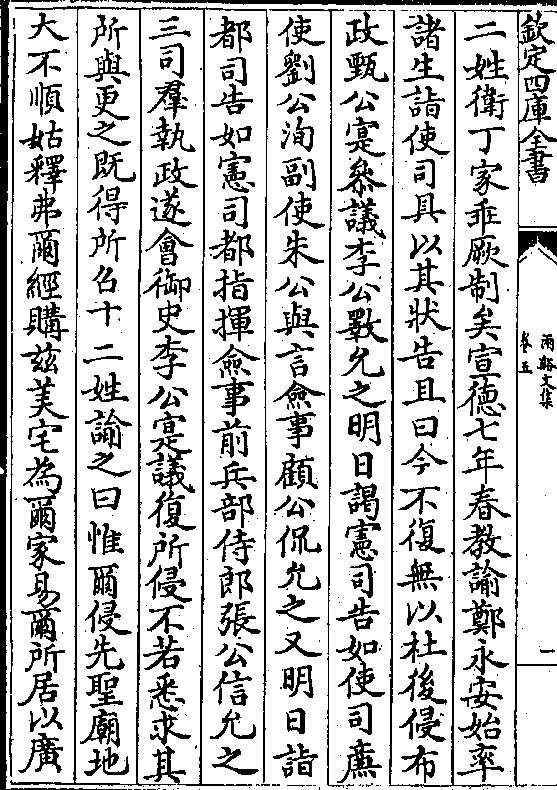 欽定四庫全書
兩谿文集
卷五
一
二姓衛丁家乖厥制矣宣德七年春教諭鄭永安始率
諸生詣使司具以其狀告且曰今不復無以杜後侵布
政甄公寔叅議李公斅允之明日謁憲司告如使司廉
使劉公洵副使朱公與言僉事顧公侃允之又明日詣
都司告如憲司都指揮僉事前兵部侍郎張公信允之
三司羣執政遂會御史李公寔議復所侵不若悉求其
所與更之既得所召十二姓諭之曰惟爾侵先聖廟地
大不順姑釋弗爾經購兹美宅為爾家易爾所居以廣